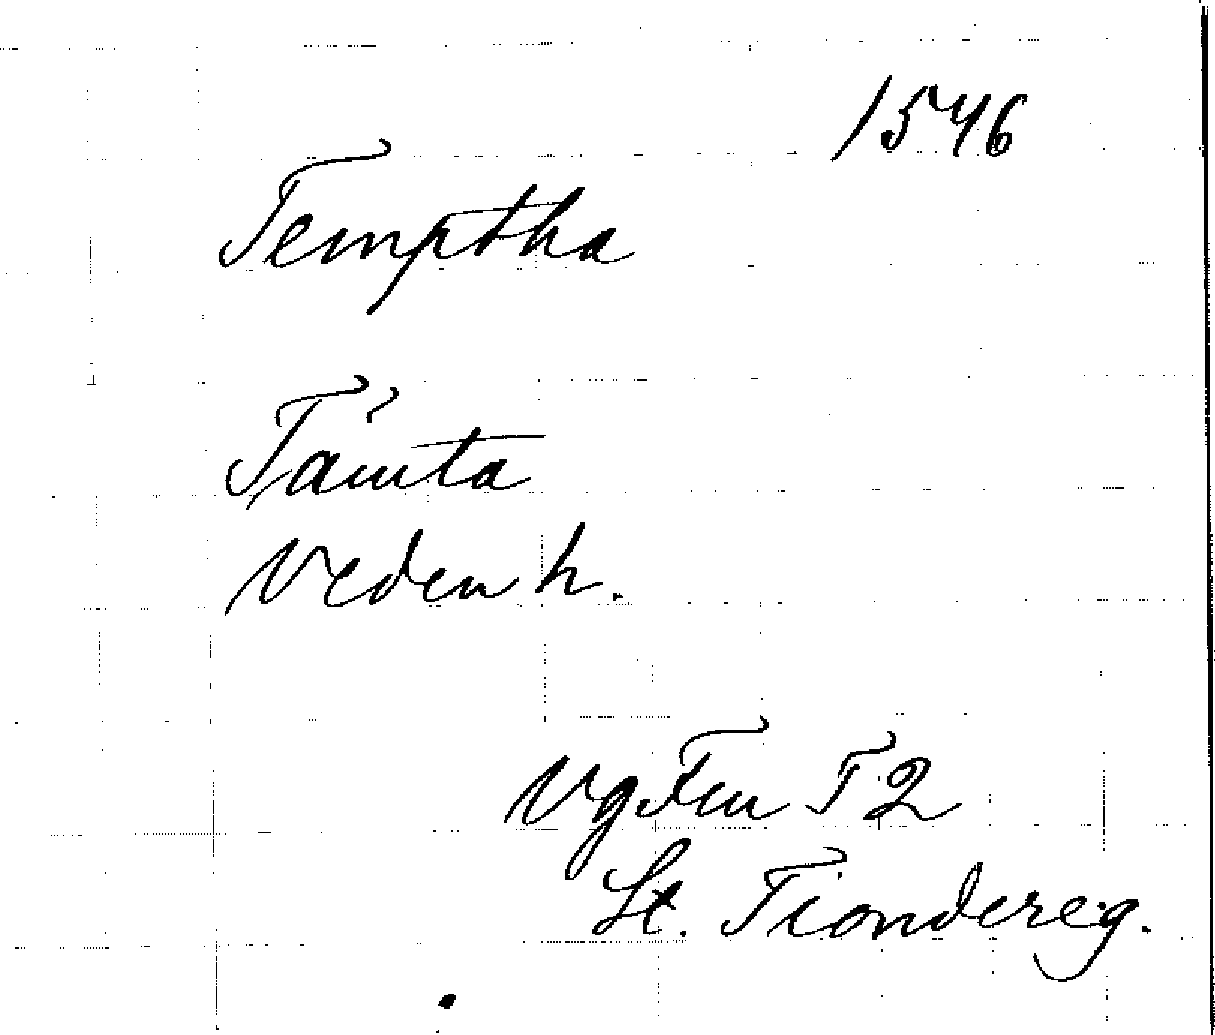 1546
Temptha
Tämta
Veden h.
Vg T 2
St. Tiondereg.